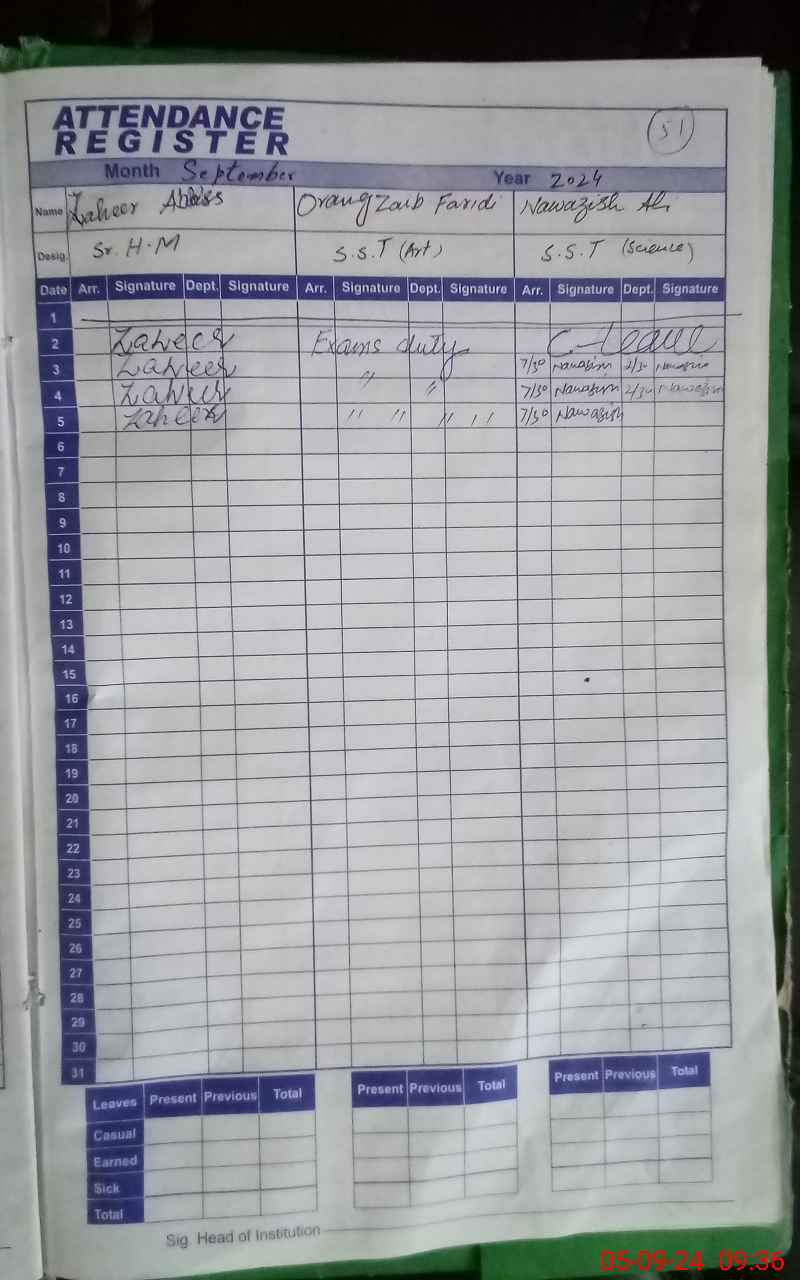 ATTENDANCE
REGISTER
51
Month September Year 2024
Name Zaheer Abbass Orangzaib Faridi Nawazish Ali
Desig. Sr. H.M S.S.T (Art) S.S.T (Science)
Date Arr. Signature Dept. Signature Arr. Signature Dept. Signature Arr. Signature Dept. Signature
1
2 Zaheer Exams duty C-leave
3 Zaheer 〃 〃 7/30 Nawazish 2/30 Nawazish
4 Zaheer 7/30 Nawazish 2/30 Nawazish
5 Zaheer 〃 〃 〃 〃 7/30 Nawazish
6
7
8
9
10
11
12
13
14
15
16
17
18
19
20
21
22
23
24
25
26
27
28
29
30
31
Leaves Present Previous Total Present Previous Total Present Previous Total
Casual
Earned
Sick
Total
Sig. Head of Institution
05-09-24 09:36